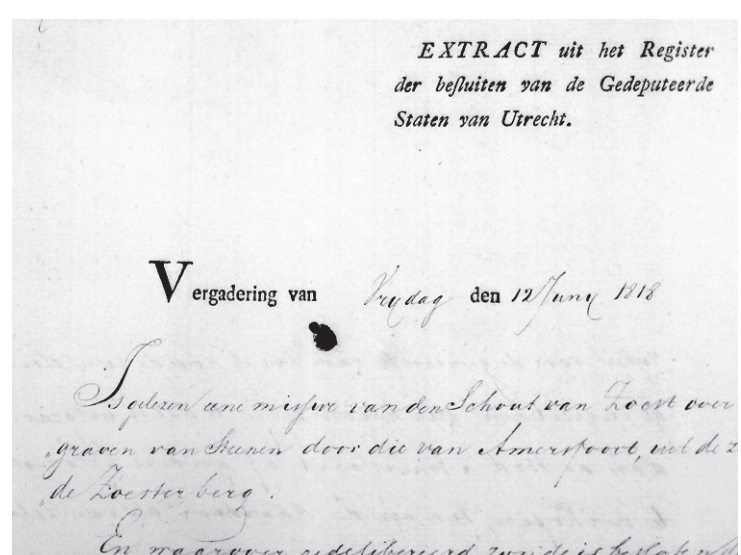 EXTRACT uit het Register
der besluiten van de Gedeputeerde
Staten van Utrecht.
Vergadering van Vrydag den 12 Juny 1818
Is gelezen eene missive van den Schout van Zoest over
graven van Steenen door die van Amersfoort, uit de
de Zoesterberg.
En waarover gedelibereerd zynde is